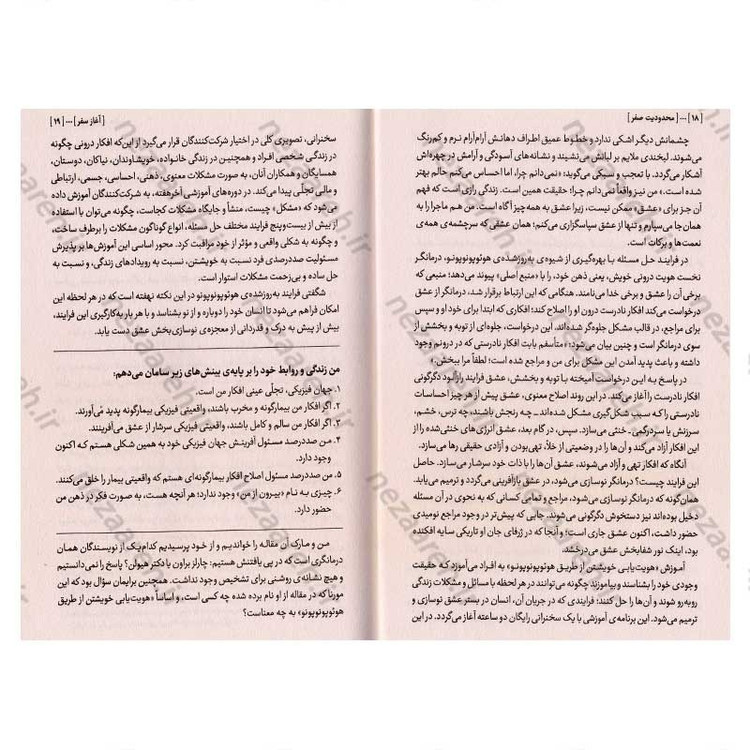 [ ۱۸ ] --- [ محدودیت صفر ]
چشمانش دیگر اشکی ندارد و خطوط عمیق اطراف دهانش آرام‌آرام نرم و کم‌رنگ
می‌شوند. لبخندی ملایم بر لبانش می‌نشیند و نشانه‌های آسودگی و آرامش در چهره‌اش
آشکار می‌گردد. با تعجب و سبکی می‌گوید: «نمی‌دانم چرا، اما احساس می‌کنم حالم بهتر
شده است.» من نیز واقعاً نمی‌دانم چرا؛ حقیقت همین است. زندگی رازی است که فهم
آن جز برای «عشق» ممکن نیست، زیرا عشق به همه‌چیز آگاه است. من هم ماجرا را به
همان‌جا می‌سپارم و تنها از عشق سپاسگزاری می‌کنم؛ همان عشقی که سرچشمه‌ی همه‌ی
نعمت‌ها و برکات است.
در فرایند حل مسئله با بهره‌گیری از شیوه‌ی به‌روزشده‌ی هوئوپونوپونو، درمانگر
نخست هویت درونی خویش، یعنی ذهن خود، را با «منبع اصلی» پیوند می‌دهد؛ منبعی که
برخی آن را عشق و برخی خدا می‌نامند. هنگامی که این ارتباط برقرار شد، درمانگر از عشق
می‌خواهد افکار نادرست درون او را اصلاح کند؛ افکاری که ابتدا برای خود او و سپس
برای مراجع، در قالب مشکل جلوه‌گر شده‌اند. این درخواست، جلوه‌ای از توبه و بخشش از
سوی درمانگر است و چنین بیان می‌شود: «متأسفم بابت افکار نادرستی که در درونم وجود
داشته و باعث پدید آمدن این مشکل برای من و مراجع شده است؛ لطفاً مرا ببخش.»
در پاسخ به این درخواست آمیخته با توبه و بخشش، عشق فرایند رازآلود دگرگونی
افکار نادرست را آغاز می‌کند. در این روند اصلاح معنوی، عشق پیش از هر چیز احساسات
نادرستی را که سبب شکل‌گیری مشکل شده‌اند ـ چه رنجش باشند، چه ترس، خشم،
سرزنش یا سردرگمی ـ خنثی می‌سازد. سپس، در گام بعد، عشق انرژی‌های خنثی‌شده را از
این افکار آزاد می‌کند و آن‌ها را در وضعیتی از خلأ، تهی‌بودن و آزادی حقیقی رها می‌سازد.
آنگاه که افکار تهی و آزاد می‌شوند، عشق آن‌ها را با ذات خود سرشار می‌سازد. حاصل
این فرایند چیست؟ درمانگر نوسازی می‌شود، در عشق بازآفرینی می‌گردد و ترمیم می‌یابد.
همان‌گونه که درمانگر نوسازی می‌شود، مراجع و تمامی کسانی که به نحوی در آن مسئله
دخیل بوده‌اند نیز دستخوش دگرگونی می‌شوند. جایی که پیش‌تر در وجود مراجع نومیدی
حضور داشت، اکنون عشق جاری است؛ و آنجا که در ژرفای جان او تاریکی سایه افکنده
بود، اینک نور شفابخش عشق می‌درخشد.
آموزش «هویت‌یابی خویشتن از طریق هوئوپونوپونو» به افراد می‌آموزد که حقیقت
وجودی خود را بشناسند و بیاموزند چگونه می‌توانند در هر لحظه با مسائل و مشکلات زندگی
روبه‌رو شوند و آن‌ها را حل کنند؛ فرایندی که در جریان آن، انسان در بستر عشق نوسازی و
ترمیم می‌شود. این برنامه‌ی آموزشی با یک سخنرانی رایگان دو ساعته آغاز می‌گردد. در این
[ آغاز سفر ] --- [ ۱۹ ]
سخنرانی، تصویری کلی در اختیار شرکت‌کنندگان قرار می‌گیرد از این‌که افکار درونی چگونه
در زندگی شخصی افراد و همچنین در زندگی خانواده، خویشاوندان، نیاکان، دوستان،
همسایگان و همکاران آنان، به صورت مشکلات معنوی، ذهنی، احساسی، جسمی، ارتباطی
و مالی تجلّی پیدا می‌کند. در دوره‌های آموزشی آخرهفته، به شرکت‌کنندگان آموزش داده
می‌شود که «مشکل» چیست، منشأ و جایگاه مشکلات کجاست، چگونه می‌توان با استفاده
از بیش از بیست‌وپنج فرایند مختلف حل مسئله، انواع گوناگون مشکلات را برطرف ساخت،
و چگونه به شکلی واقعی و مؤثر از خود مراقبت کرد. محور اساسی این آموزش‌ها بر پذیرش
مسئولیت صددرصدی فرد نسبت به خویشتن، نسبت به رویدادهای زندگی، و نسبت به
حل ساده و بی‌زحمت مشکلات استوار است.
شگفتی فرایند به‌روزشده‌ی هوئوپونوپونو در این نکته نهفته است که در هر لحظه این
امکان فراهم می‌شود تا انسان خود را دوباره و از نو بشناسد و با هر بار به‌کارگیری این فرایند،
بیش از پیش به درک و قدردانی از معجزه‌ی نوسازی‌بخش عشق دست یابد.
من زندگی و روابط خود را بر پایه‌ی بینش‌های زیر سامان می‌دهم:
۱. جهان فیزیکی، تجلّی عینی افکار من است.
۲. اگر افکار من بیمارگونه و مخرب باشند، واقعیتی فیزیکی بیمارگونه پدید می‌آورند.
۳. اگر افکار من سالم و کامل باشند، واقعیتی فیزیکی سرشار از عشق می‌آفرینند.
۴. من صددرصد مسئول آفرینش جهان فیزیکی خود به همین شکلی هستم که اکنون
وجود دارد.
۵. من صددرصد مسئول اصلاح افکار بیمارگونه‌ای هستم که واقعیتی بیمار را خلق می‌کنند.
۶. چیزی به نام «بیرون از من» وجود ندارد؛ هر آنچه هست، به صورت فکر در ذهن من
حضور دارد.
من و مارک آن مقاله را خواندیم و از خود پرسیدیم کدام‌یک از نویسندگان همان
درمانگری است که در پی یافتنش هستیم: چارلز براون یا دکتر هیولن؟ پاسخ را نمی‌دانستیم
و هیچ نشانه‌ی روشنی برای تشخیص وجود نداشت. همچنین برایمان سؤال بود که این
مورنا که در مقاله از او نام برده شده چه کسی است، و اساساً «هویت‌یابی خویشتن از طریق
هوئوپونوپونو» به چه معناست؟
nezaareh.ir